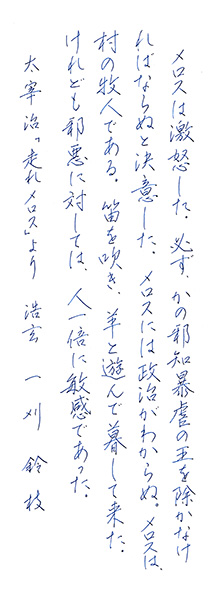 メロスは激怒した。必ず、かの邪知暴虐の王を除かなけ
ればならぬと決意した。メロスには政治がわからぬ。メロスは、
村の牧人である。笛を吹き、羊と遊んで暮して来た。
けれども邪悪に対しては、人一倍に敏感であった。
太宰治「走れメロス」より 浩玄 一刈 鈴枝